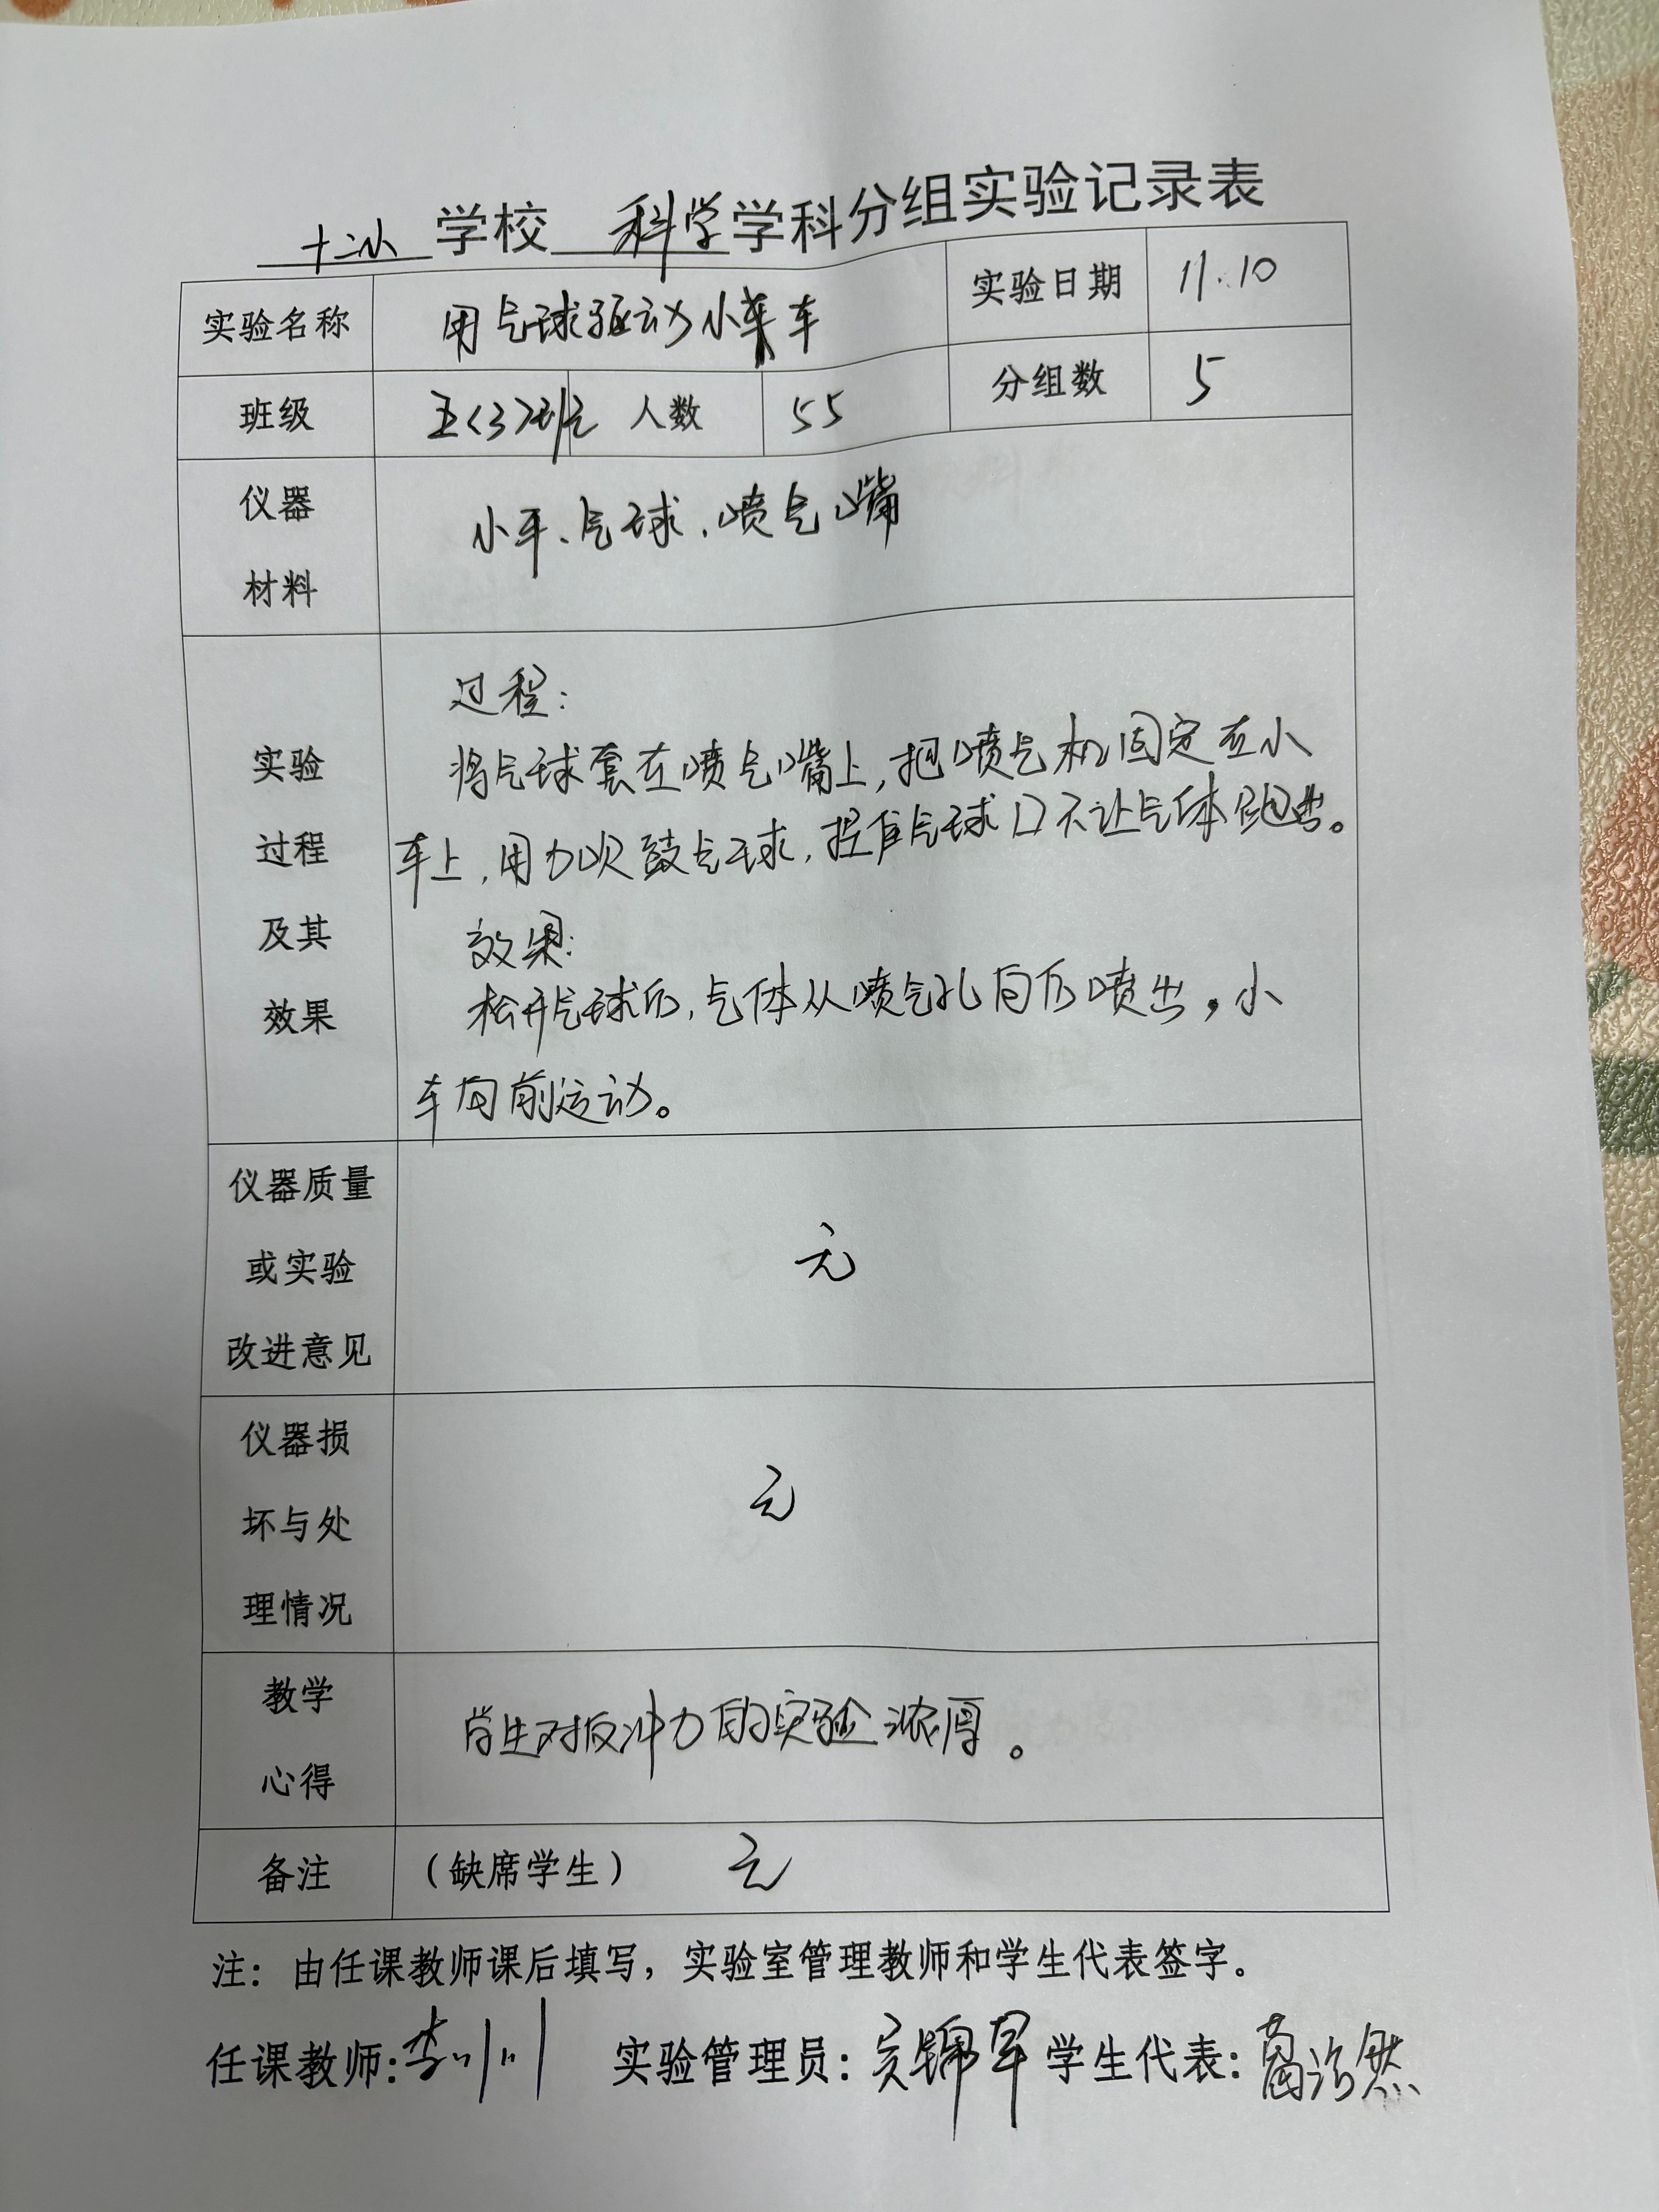 十二小 学校 科学 学科分组实验记录表
实验名称 用气球驱动小车 实验日期 11.10
班级 五<3>班 人数 55 分组数 5
仪器
材料
小车、气球、喷气嘴
实验
过程
及其
效果
过程:
将气球套在喷气嘴上,把喷气机固定在小
车上,用力吹鼓气球,捏住气球口不让气体跑出。
效果:
松开气球后,气体从喷气孔向后喷出,小
车向前运动。
仪器质量
或实验
改进意见
无
仪器损
坏与处
理情况
无
教学
心得
学生对反冲力的实验浓厚。
备注 (缺席学生) 无
注：由任课教师课后填写，实验室管理教师和学生代表签字。
任课教师: 李 实验管理员: 学生代表: 葛浩然